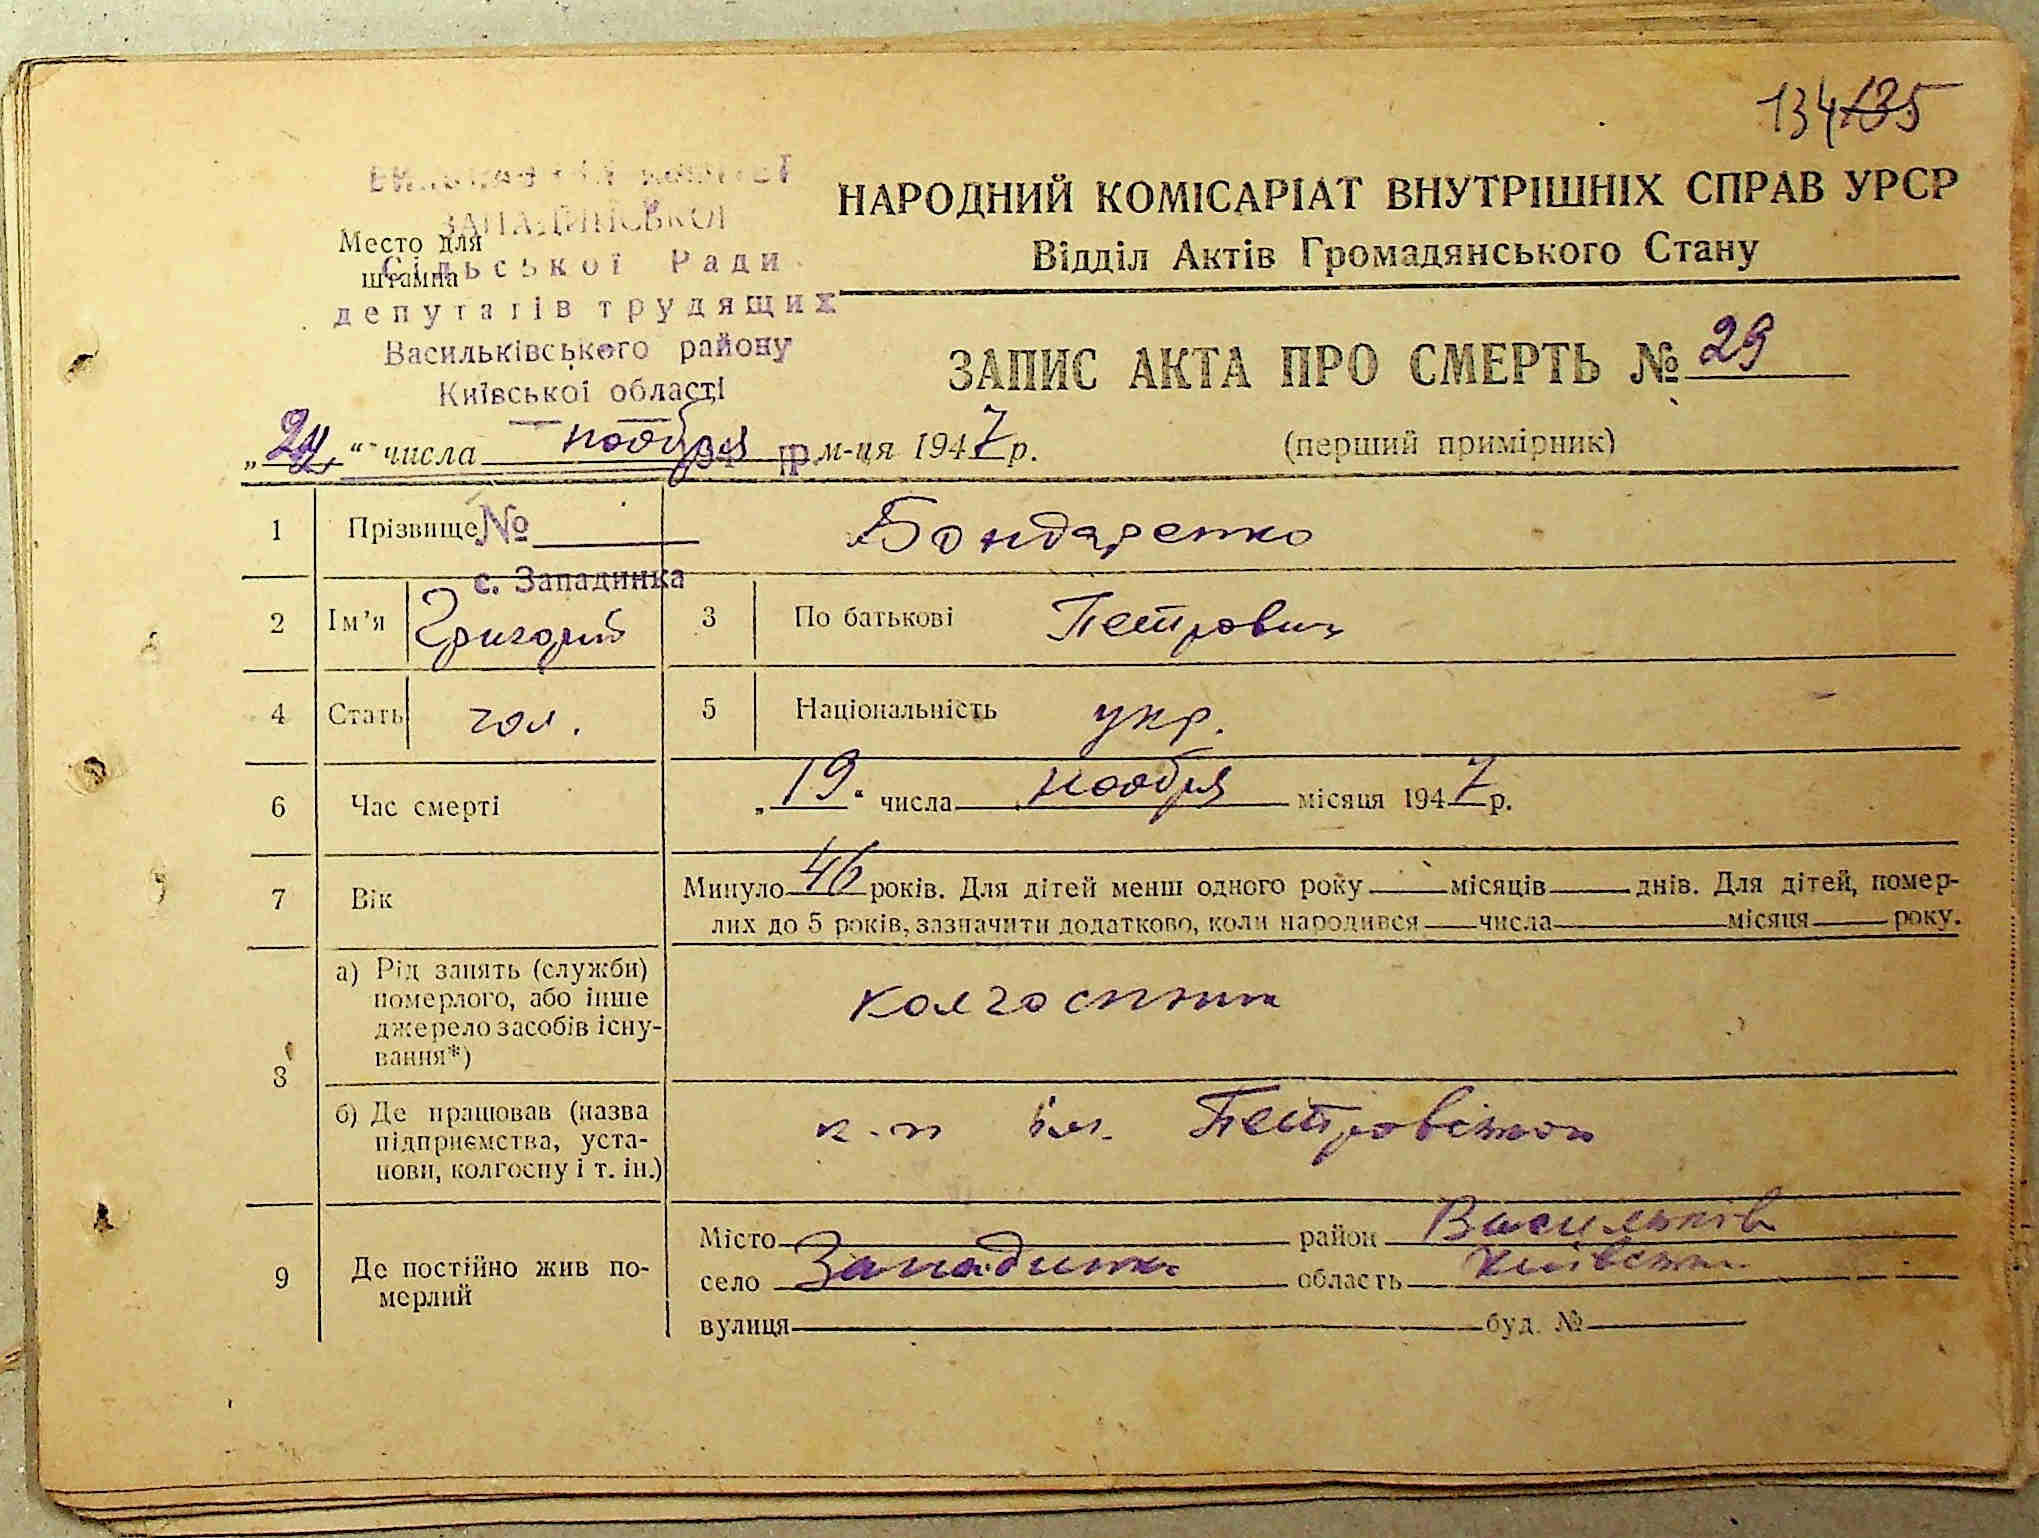 134 135
ВИКОНАВЧИЙ КОМІТЕТ
ЗАПАДИНСЬКОЇ
Сільської Ради
депутатів трудящих
Васильківського району
Київської області
Место для
штампа
НАРОДНИЙ КОМІСАРІАТ ВНУТРІШНІХ СПРАВ УРСР
Відділ Актів Громадянського Стану
ЗАПИС АКТА ПРО СМЕРТЬ № 29
(перший примірник)
„ “ числа ноября м-ця 1947 р.
1 Прізвище Бондаренко
№
с. Западинка
2 Ім’я Григорий 3 По батькові Петрович
4 Стать чол. 5 Національність укр.
6 Час смерті „19“ числа ноября місяця 1947 р.
7 Вік Минуло 46 років. Для дітей менш одного року місяців днів. Для дітей, помер-
лих до 5 років, зазначити додатково, коли народився числа місяця року.
8 а) Рід занять (служби)
померлого, або інше
джерело засобів існу-
вання*)
колгоспник
б) Де працював (назва
підприємства, уста-
нови, колгоспу і т. ін.)
к-п ім. Петровського
9 Де постійно жив по-
мерлий
Місто район Васильків
село Западинка область Київська
вулиця буд. №